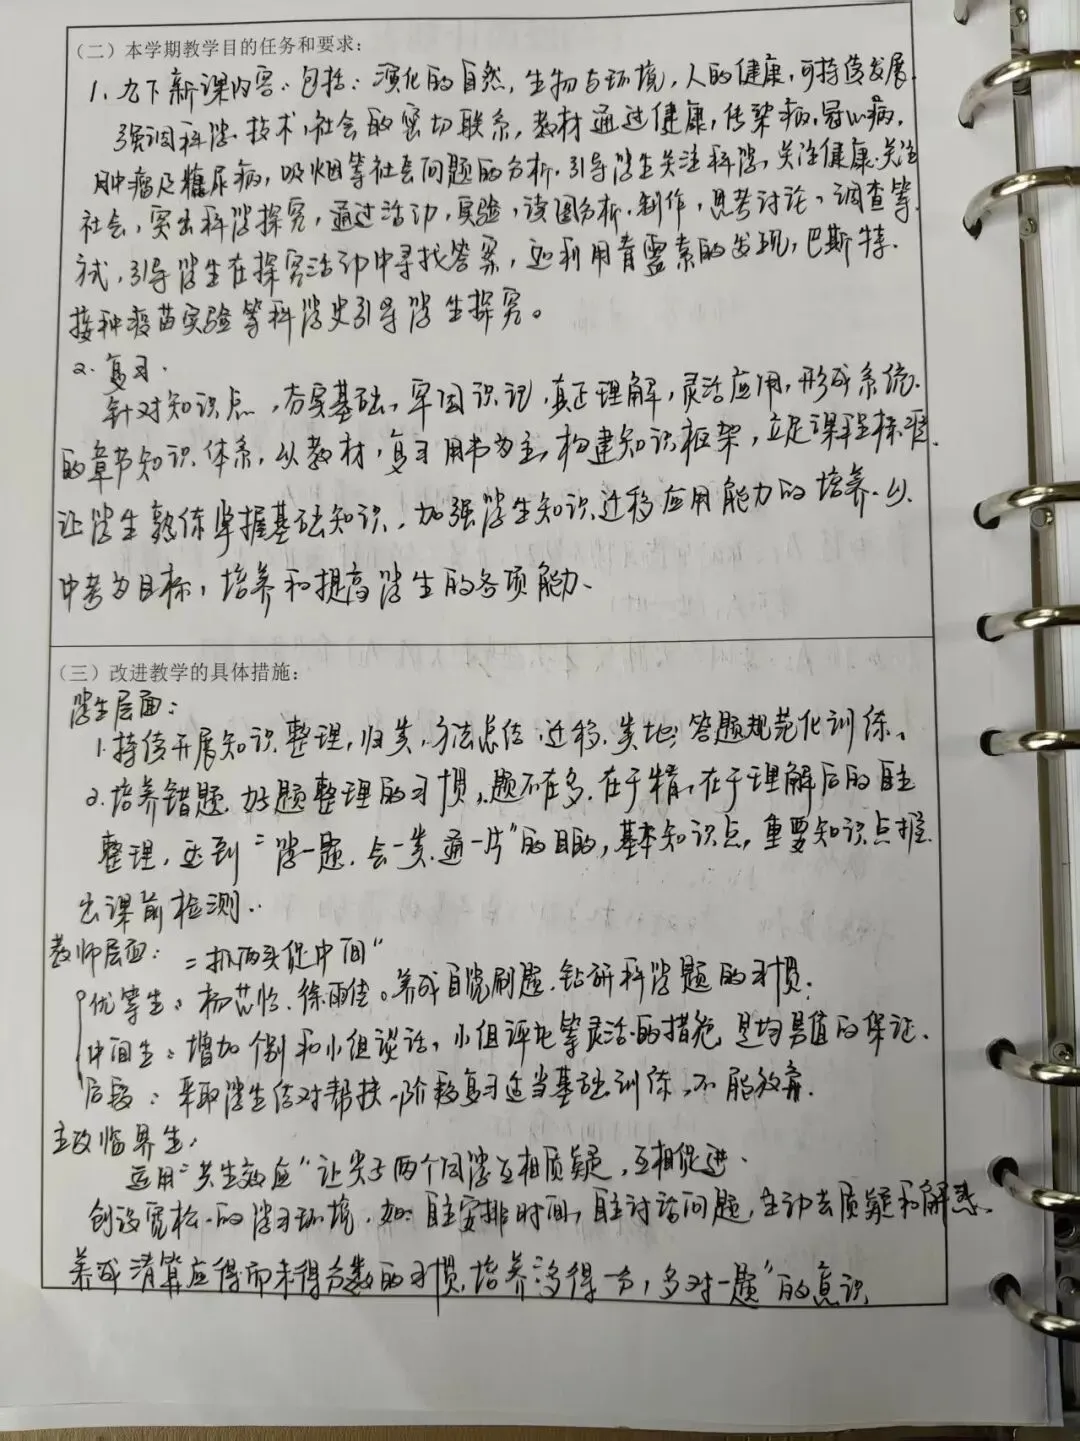 （二）本学期教学目的任务和要求：
1. 九下新课内容. 包括：演化的自然，生物与环境，人的健康，可持续发展.
强调科学.技术，社会的密切联系，教材通过健康，传染病，冠心病，
肿瘤及糖尿病，吸烟等社会问题的分析. 引导学生关注科学，关注健康.关注
社会，突出科学探究，通过活动，实验，读图分析.制作，思考讨论，调查等
方式，引导学生在探究活动中寻找答案，还利用青霉素的发现，巴斯特.
接种疫苗实验等科学史引导学生探究。
2. 复习.
针对知识点，夯实基础，牢固识记，真正理解，灵活应用，形成系统.
的章节知识体系，以教材，复习用书为主，构建知识框架，立足课程标准.
让学生熟练掌握基础知识，加强学生知识迁移应用能力的培养.以
中考为目标，培养和提高学生的各项能力.
（三）改进教学的具体措施：
学生层面：
1. 持续开展知识整理，归类，方法总结.迁移.类比；答题规范化训练。
2. 培养错题.好题整理的习惯，题不在多.在于精，在于理解后的自主
整理，达到“学一题.会一类.通一片”的目的，基本知识点，重要知识点提
出课前检测..
教师层面：“抓两头促中间”
优等生：杨芯怡.徐雨佳。养成自觉刷题.钻研科学题的习惯.
中间生：增加个别和小组谈话，小组评比等灵活的措施，是均量值的保证.
后段：采取学生结对帮扶.阶段复习适当基础训练，不能放弃.
主攻临界生：
运用“共生效应”让尖子两个同学互相质疑，互相促进.
创设宽松的学习环境，如：自主安排时间，自主讨论问题，主动去质疑和解惑.
养成清算应得而未得分数的习惯，培养“多得一分，多对一题”的意识